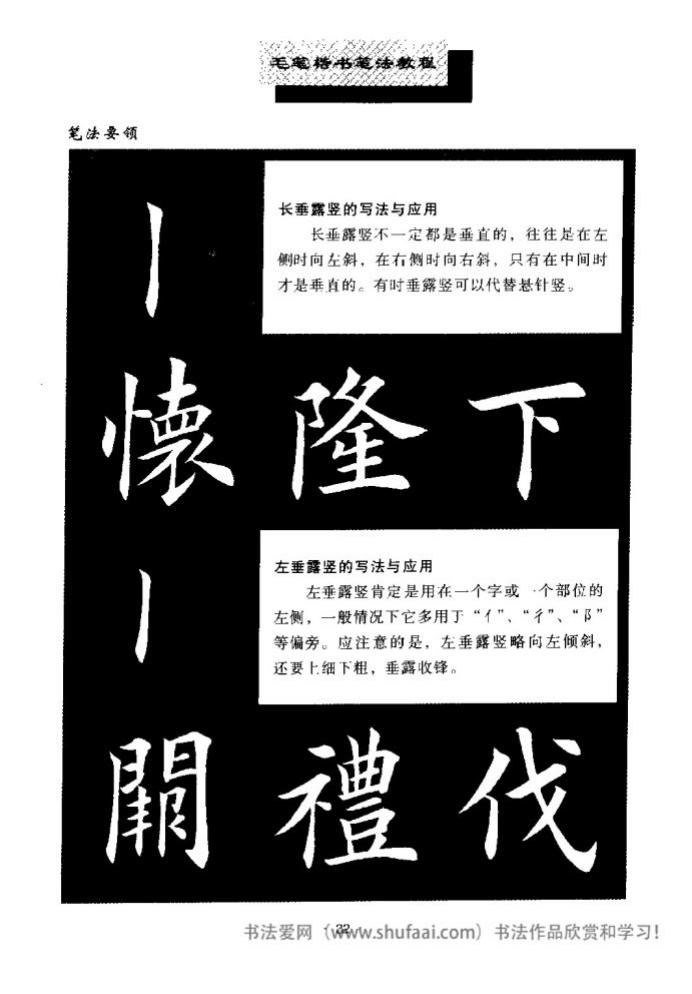 毛笔楷书笔法教程
笔法要领
长垂露竖的写法与应用
长垂露竖不一定都是垂直的，往往是在左
侧时向左斜，在右侧时向右斜，只有在中间时
才是垂直的。有时垂露竖可以代替悬针竖。
懷隆下
左垂露竖的写法与应用
左垂露竖肯定是用在一个字或一个部位的
左侧，一般情况下它多用于“亻”、“彳”、“阝”
等偏旁。应注意的是，左垂露竖略向左倾斜，
还要上细下粗，垂露收锋。
禮伐
32
书法爱网（www.shufaai.com）书法作品欣赏和学习！